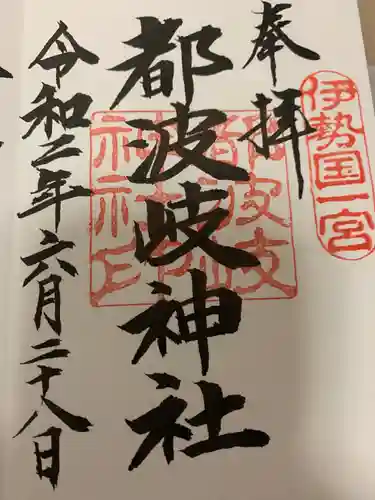 奉拝
伊勢国一宮
都波岐神社
都波岐
神社印
令和二年六月二十八日